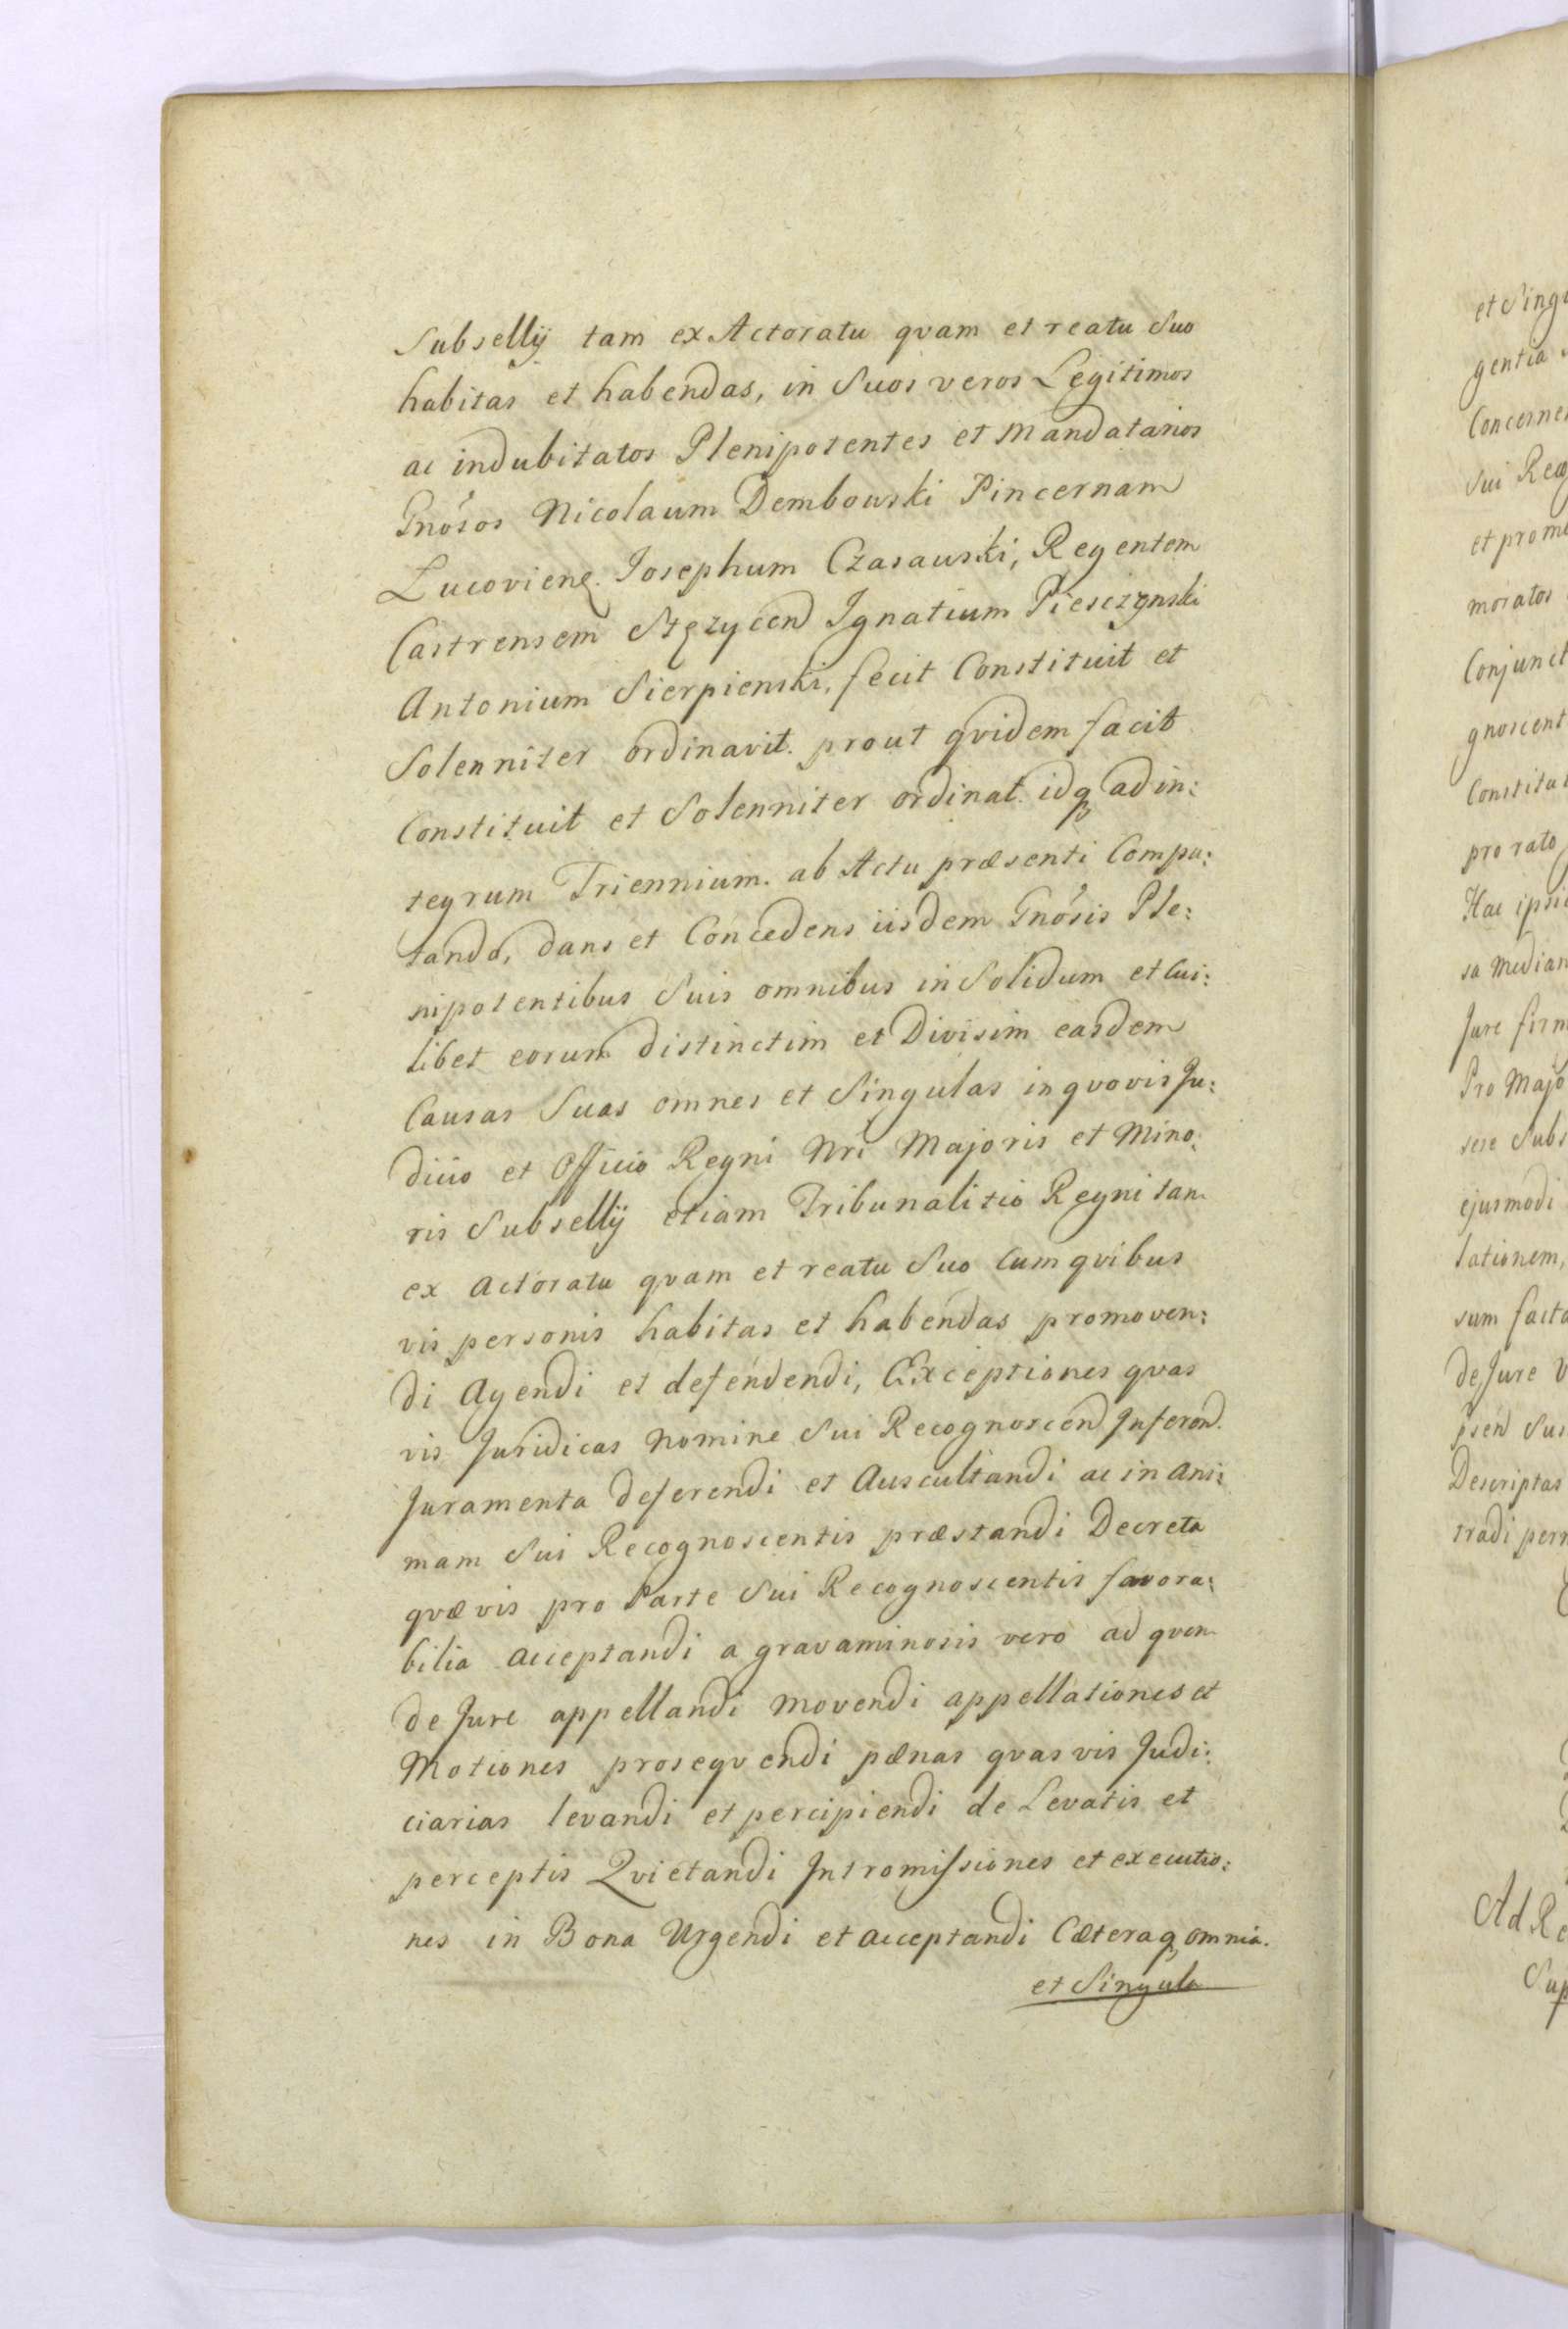 Subsellÿ tam ex Actoratu qvam et reatu Suo
habitas et habendas, in Suos veros Legitimos
ac indubitatos Plenipotentes et Mandatarios
Gnósos Nicolaum Dembowski Pincernam
Lucovien. Josephum Czasauski, Regentem
Castrensem Stęzycen Ignatium Piesczynski
Antonium Sierpienski, fecit Constituit et
Solenniter ordinavit. prout qvidem facit
Constituit et Solenniter ordinat. idq ad in:
tegrum Triennium. ab Actu præsenti Compu:
tando, dans et Concedens iisdem Gnósis Ple:
nipotentibus Suis omnibus in Solidum et Cui:
libet eorum distinctim et Divisim easdem
Causas Suas omnes et Singulas in qvovis Ju:
dicio et Officio Regni Nri Majoris et Mino:
ris Subsellÿ etiam Tribunalitio Regni tam
ex Actoratu qvam et reatu Suo Cum qvibus
vis personis habitas et habendas promoven:
di Agendi et defendendi, Exceptiones qvas
vis Juridicas Nomine Sui Recognoscen Inferend.
Juramenta deferendi et Auscultandi ac in Ani:
mam Sui Recognoscentis præstandi Decreta
qvævis pro Parte Sui Recognoscentis favora:
bilia acceptandi a gravaminosis vero ad qvem
de Jure appellandi Movendi appellationes et
Motiones proseqvendi pænas qvas vis Judi:
ciarias levandi et percipiendi de Levatis et
perceptis Qvietandi Intromissiones et executio:
nes in Bona Urgendi et acceptandi Cæteraq, omnia.
et Singula
et Sing
gentia
Concerne
Sui Reco
et prom
moratos
Conjunct
gnoscent
Constitu
pro rato
Hac ipsi
sa Median
Jure firm
Pro Majo
sere Subs
ejusmodi
lationem,
sum facto
de Jure
psen Sus
Descriptas
tradi per
Ad Re
Sup